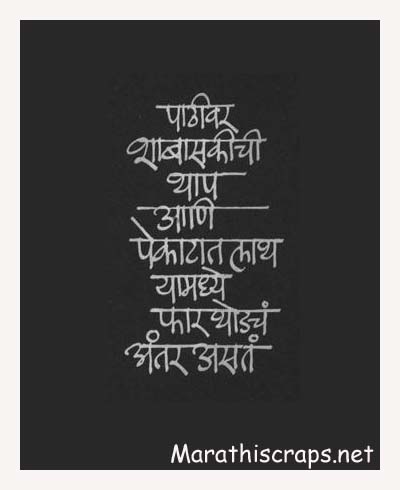 पाठीवर
शाबासकीची
थाप
आणि
पेकाटात लाथ
यामध्ये
फार थोडचं
अंतर असतं
Marathiscraps.net